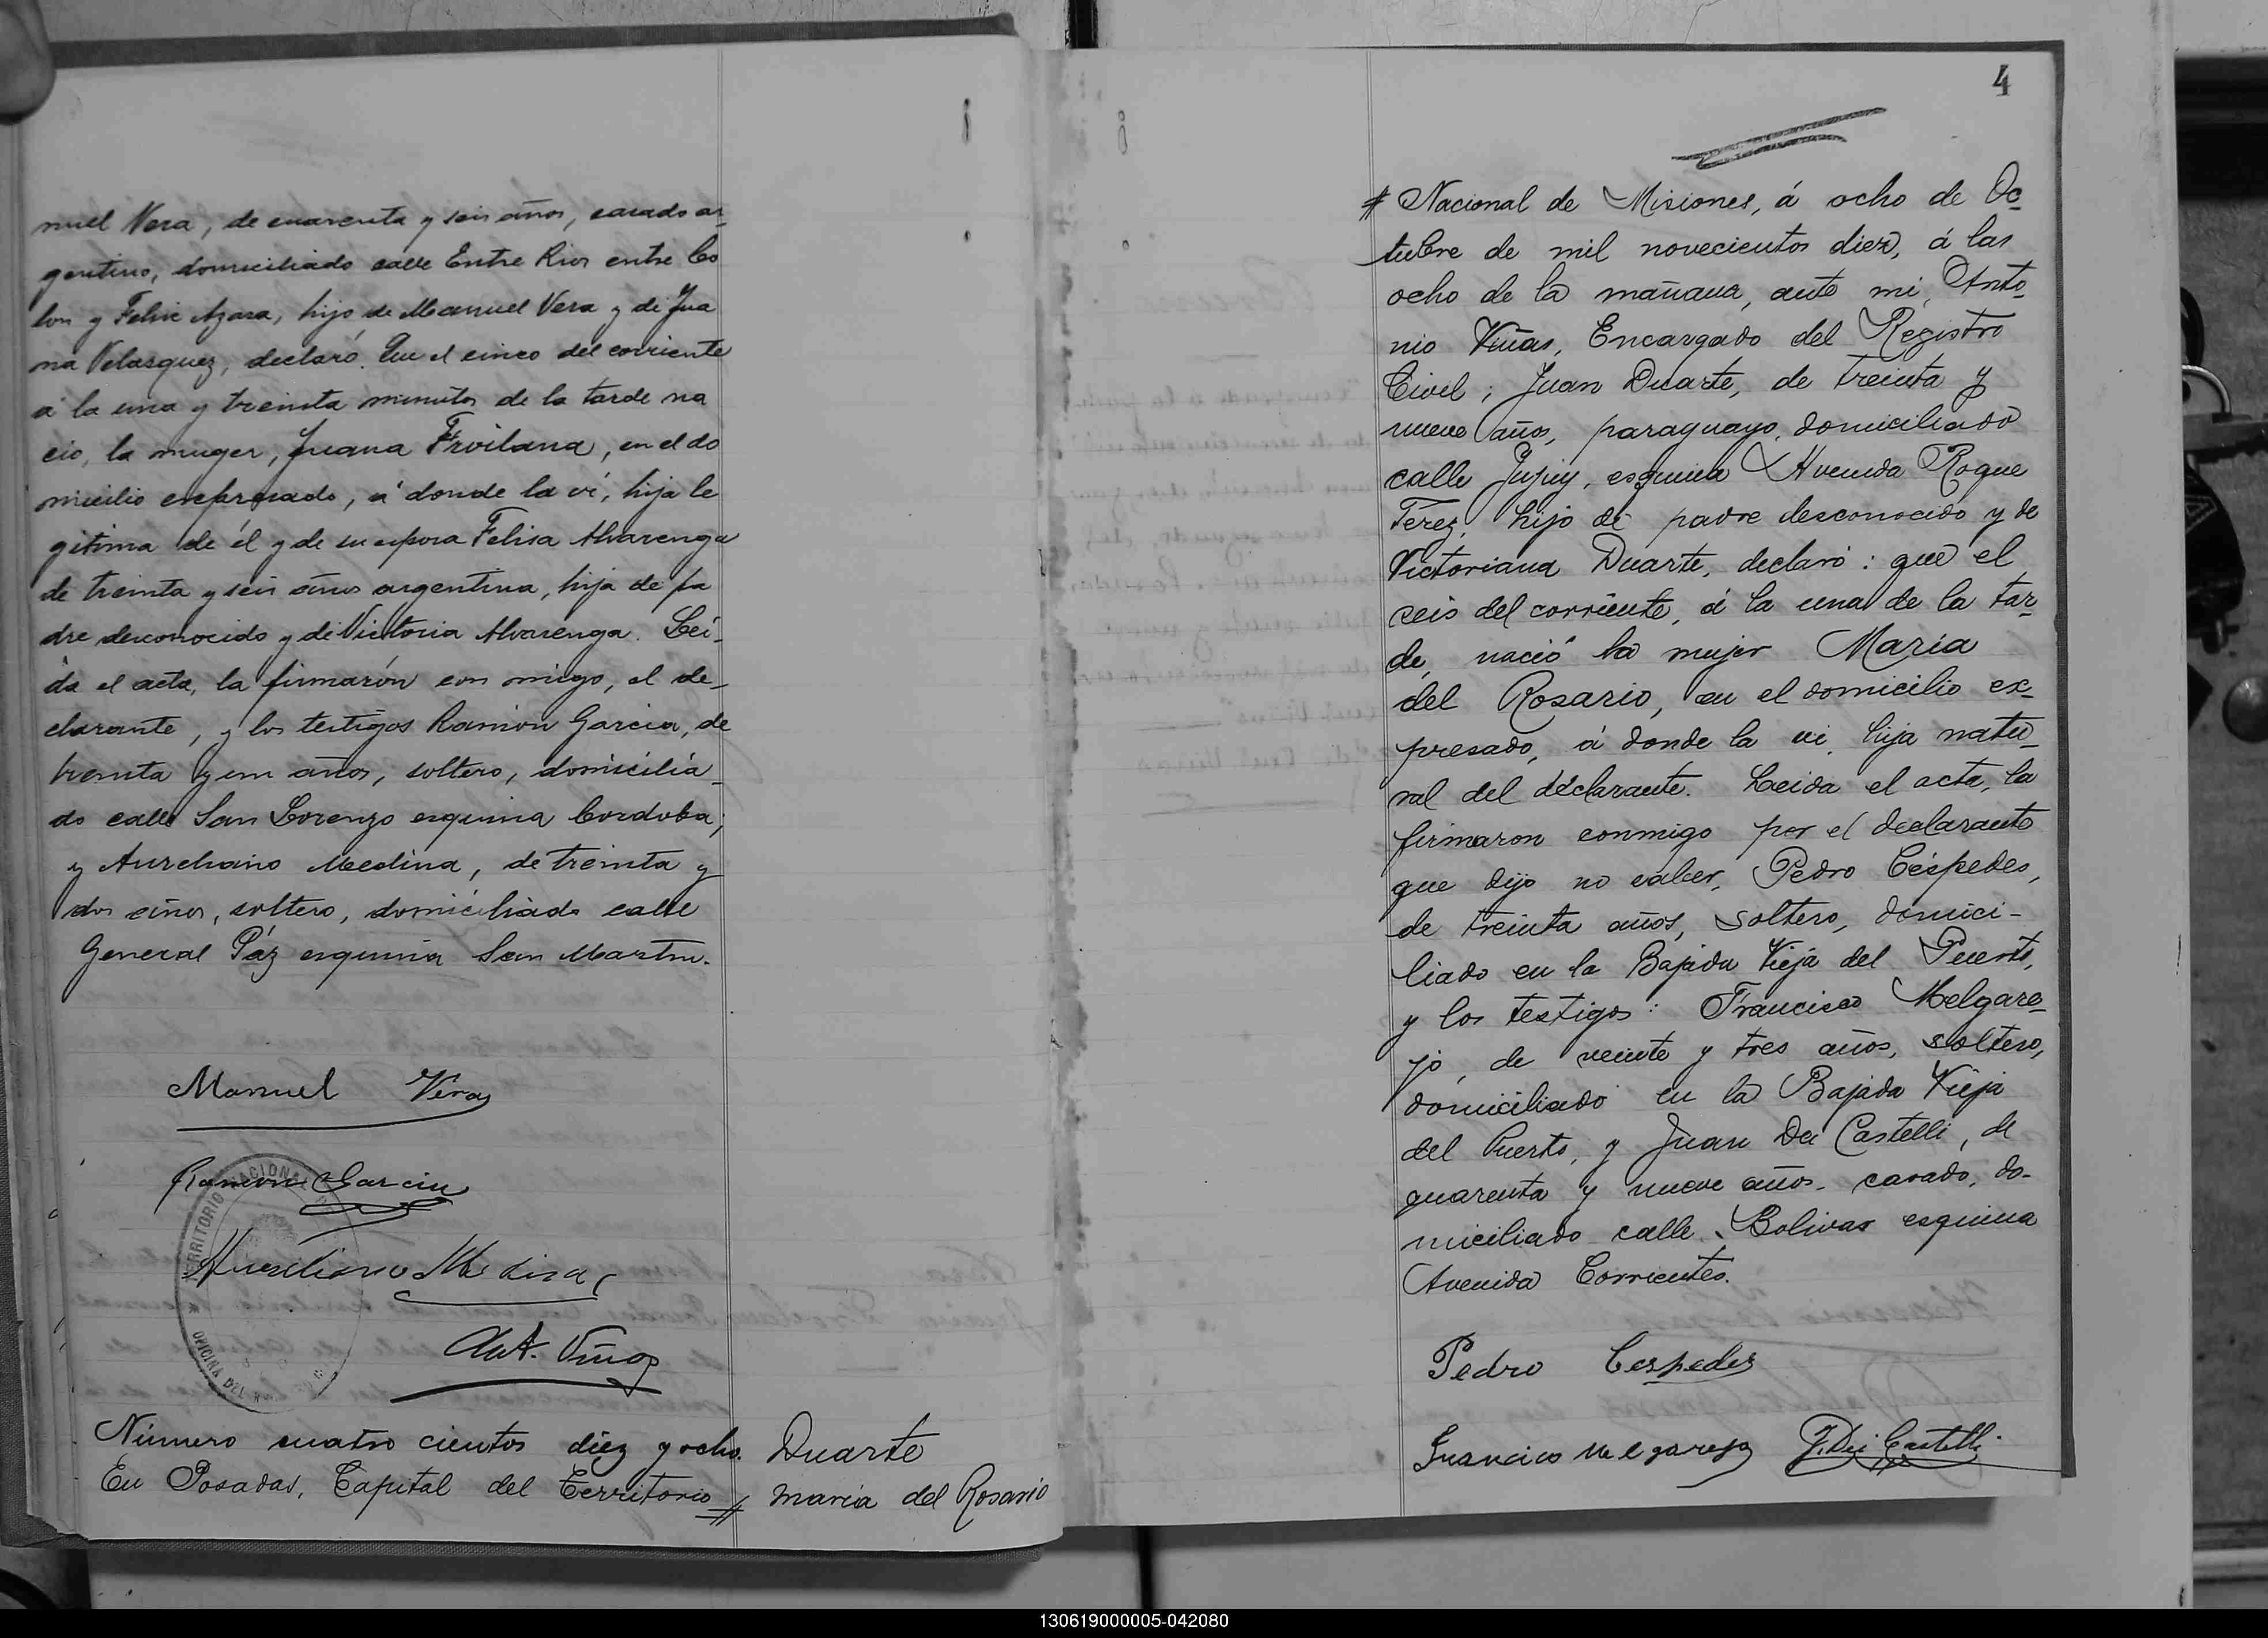 nuel Vera, de cuarenta y seis años, casado ar-
gentino, domiciliado calle Entre Rios entre Co
lon y Felix Azara, hijo de Manuel Vera y de Jua
na Velasquez, declaró. Que el cinco del corriente
á la una y treinta minutos de la tarde na
cio, la muger, Juana Froilana, en el do
micilio expresado, á donde la ví, hija le
gitima de él y de su esposa Felisa Alvarenga
de treinta y seis años argentina, hija de pa
dre desconocido y de Victoria Alvarenga. Leí-
da el acta, la firmarón con migo, el de-
clarante, y los testigos Ramon Garcia, de
treinta y un años, soltero, domicilia-
do calle San Lorenzo esquina Cordoba;
y Aureliano Medina, de treinta y
dos años, soltero, domiciliado calle
General Páz esquina San Martin.
Manuel Vera
Ramon Garcia
Aureliano Medina
Ant. Viñas
TERRITORIO NACIONAL
OFICINA DEL
Número cuatro cientos diez y ocho.
En Posadas, Capital del Territorio #
Duarte
Maria del Rosario
4
# Nacional de Misiones, á ocho de Oc-
tubre de mil novecientos diez, á las
ocho de la mañana, ante mi, Anto-
nio Viñas, Encargado del Registro
Civil; Juan Duarte, de treinta y
nueve años, paraguayo, domiciliado
calle Jujuy, esquina Avenida Roque
Perez, hijo de padre desconocido y de
Victoriana Duarte, declaró: que el
seis del corriente, á la una de la tar-
de, nació la mujer Maria
del Rosario, en el domicilio ex-
presado, á donde la vi, hija natu-
ral del declarante. Leida el acta, la
firmaron conmigo por el declarante
que dijo no saber, Pedro Céspedes,
de treinta años, soltero, domici-
liado en la Bajada Vieja del Puerto,
y los testigos: Francisco Melgare-
jo, de veinte y tres años, soltero,
domiciliado en la Bajada Vieja
del Puerto, y Juan Dei Castelli, de
quarenta y nueve años, casado, do-
miciliado calle Bolivar esquina
Avenida Corrientes.
Pedro Cespedes
Francisco Melgarejo J. Dei Castelli
130619000005-042080